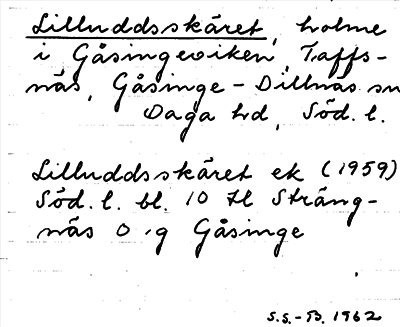 Lilluddsskäret, holme
i Gåsingeviken, Taffs-
näs, Gåsinge-Dillnäs sn
Daga hd, Söd. l.
Lilluddsskäret ek (1959)
Söd. l. bl. 10 Sträng-
näs O Gåsinge
S.S.-B. 1962